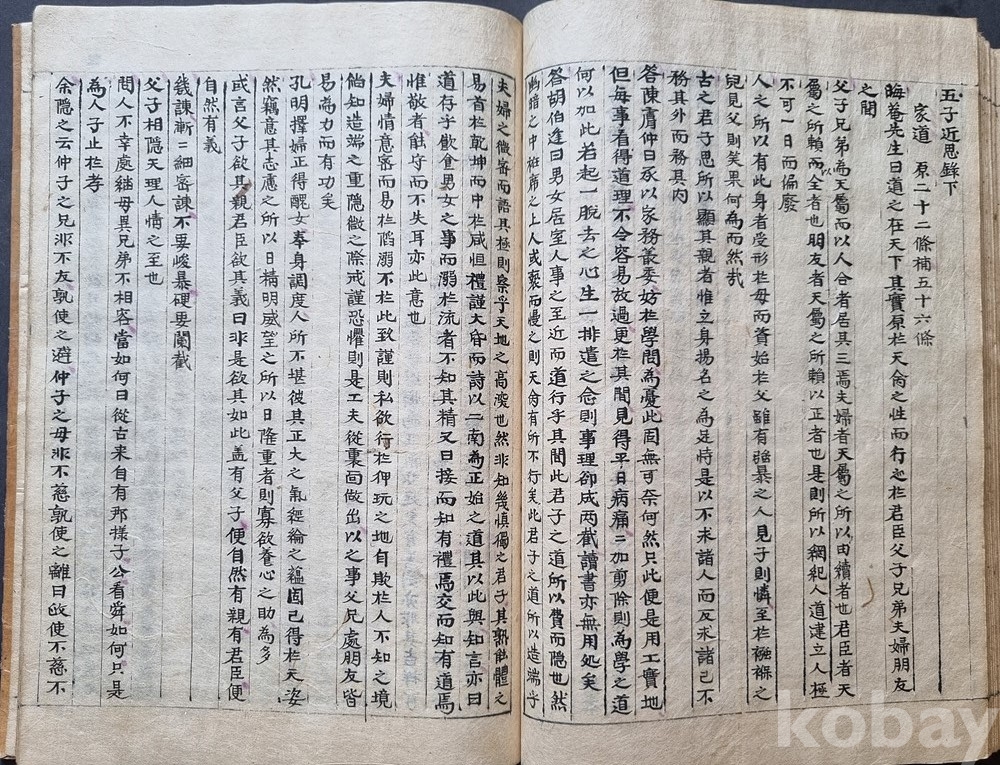 五子近思錄下
家道 原二十二條補五十六條
晦菴先生曰道之在天下其實原於天命之性而行之於君臣父子兄弟夫婦朋友
之間
父子兄弟為天屬而以人合者居其三焉夫婦者天屬之所以由續者也君臣者天
屬之所賴以全者也朋友者天屬之所賴以正者也是則所以綱紀人道建立人極
不可一日而偏廢
人之所以有此身者受形於母而資始於父雖有強暴之人見子則憐至於襁褓之
兒見父則笑果何為而然哉
古之君子思所以顯其親者惟立身揚名之為是以不求諸人而反求諸己不
務其外而務其內
答陳膚仲曰承以家務叢委妨於學問為憂此固無可奈何然只此便是用工實地
但每事看得道理不令容易放過更於其間見得平日病痛二加剪除則為學之道
何以加此若起一脫去之心生一排遣之念則事理却成两截讀書亦無用処矣
答胡伯逢曰男女居室人事之至近而道行乎其間此君子之道所以費而隱也然
幽暗之中袵席之上人或褻而慢之則天命有所不行矣此君子之道所以造端乎
夫婦之微密而語其極則察乎天地之高深也然非知幾慎獨之君子其孰能體之
易首於乾坤而中於咸恒禮謹大昏而詩以二南為正始之道其以此與知言亦曰
道存乎飲食男女之事而溺於流者不知其精又曰接而知有禮焉交而知有道焉
惟敬者能守而不失耳亦此意也
夫婦情意密而易於陷溺不於此致謹則私欲行於狎玩之地自欺於人不知之境
倘知造端之重隱微之際戒謹恐懼則是工夫從裏面做出以之事父兄處朋友皆
易為力而有功矣
孔明擇婦正得醜女奉身調度人所不堪彼其正大之氣經綸之蘊固已得於天姿
然竊意其志慮之所以日精明威望之所以日隆重者則寡欲養心之助為多
或言父子欲其親君臣欲其義曰非是欲其如此盖有父子便自然有親有君臣便
自然有義
幾諫漸二細密諫不要峻暴硬要闌截
父子相隱天理人情之至也
問人不幸處繼母異兄弟不相容當如何曰從古来自有那樣子公看舜如何只是
為人子止於孝
余隐之云仲子之兄非不友孰使之避仲子之母非不慈孰使之離曰政使不慈不